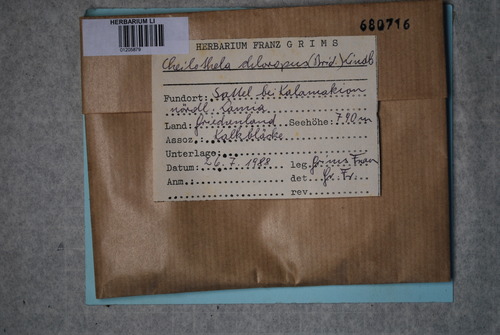 HERBARIUM LI
01205979
680716
HERBARIUM FRANZ GRIMS
Cheilothela chloropus (Brid.) Lindb
Fundort: Sattel bei Kalamakion
nördl. Lamia
Land: Griechenland Seehöhe: 790 m
Assoz.: Kalkblöcke
Unterlage:
Datum: 26.7.1988 leg. Grims Franz
Anm.: det. Gr. Fr.
rev.